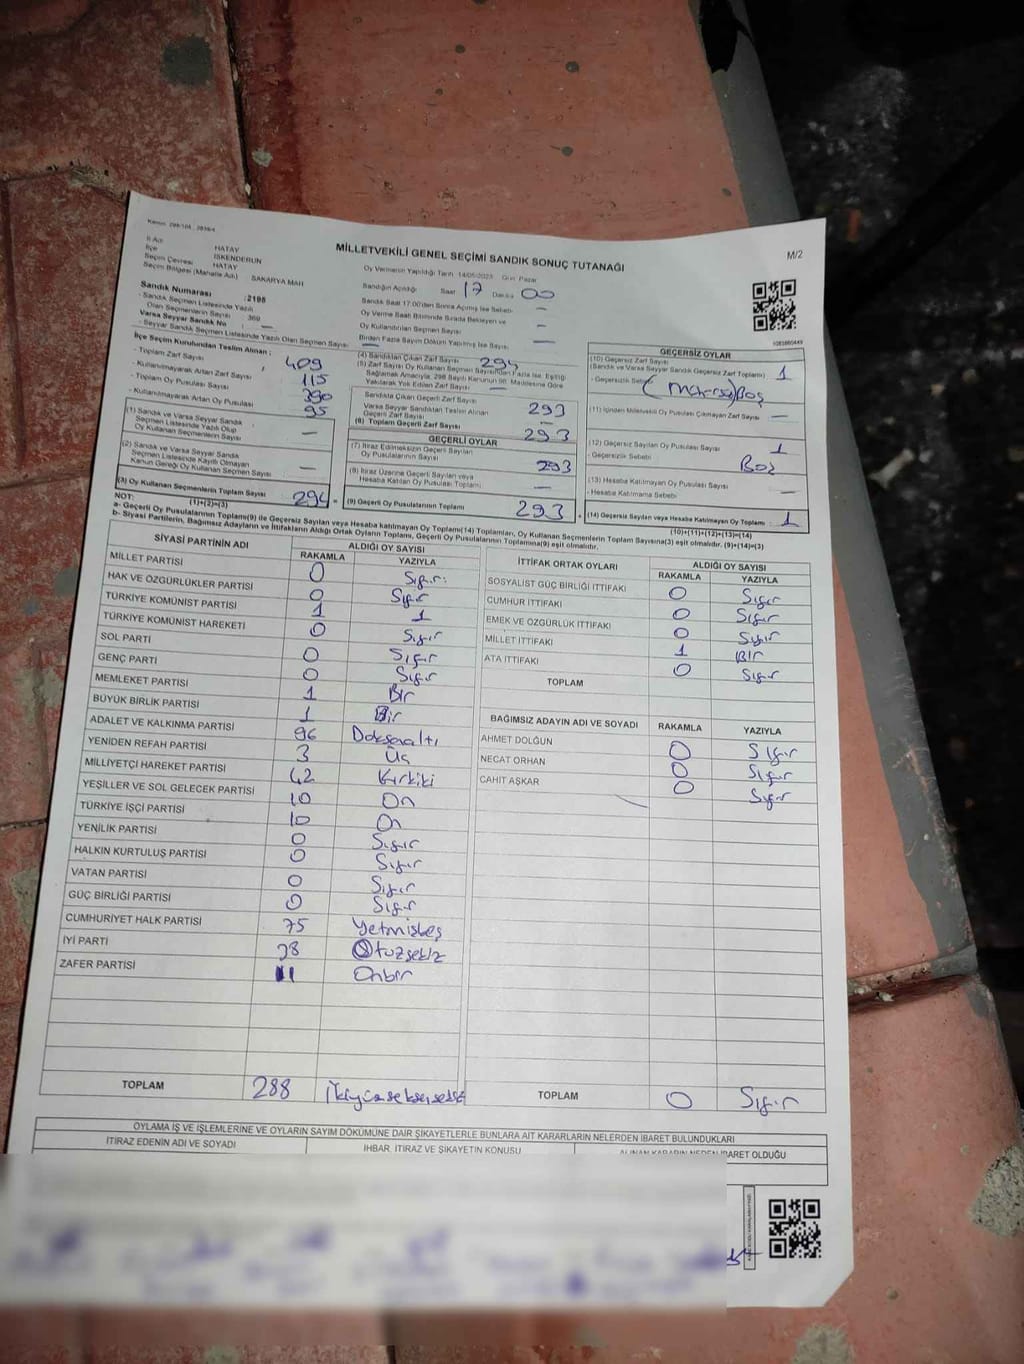 M/2
MİLLETVEKİLİ GENEL SEÇİMİ SANDIK SONUÇ TUTANAĞI
İl Adı HATAY
İlçe İSKENDERUN
Seçim Çevresi HATAY
Seçim Bölgesi (Mahalle Adı) : SAKARYA MAH
Oy Vermenin Yapıldığı Tarih 14/05/2023 Gün: Pazar
Sandığın Açıldığı Saat 17 Dakika 00
Sandık Saat 17.00'den Sonra Açılmış İse Sebebi —
Oy Verme Saati Bitiminde Sırada Bekleyen ve
Oy Kullandırılan Seçmen Sayısı —
Birden Fazla Sayım Döküm Yapılmış İse Sayısı —
Sandık Numarası : 2198
- Sandık Seçmen Listesinde Yazılı
Olan Seçmenlerin Sayısı : 369
Varsa Seyyar Sandık No : —
- Seyyar Sandık Seçmen Listesinde Yazılı Olan Seçmen Sayısı: —
İlçe Seçim Kurulundan Teslim Alınan ;
- Toplam Zarf Sayısı 409
- Kullanılmayarak Artan Zarf Sayısı 115
- Toplam Oy Pusulası Sayısı 390
- Kullanılmayarak Artan Oy Pusulası 95
(1) Sandık ve Varsa Seyyar Sandık
Seçmen Listesinde Yazılı Olup
Oy Kullanan Seçmenlerin Sayısı —
(2) Sandık ve Varsa Seyyar Sandık
Seçmen Listesinde Kayıtlı Olmayan
Kanun Gereği Oy Kullanan Seçmen Sayısı —
(3) Oy Kullanan Seçmenlerin Toplam Sayısı
(1)+(2)=(3) 294
(4) Sandıktan Çıkan Zarf Sayısı 294
(5) Zarf Sayısı Oy Kullanan Seçmen Sayısından Fazla İse, Eşitliği
Sağlamak Amacıyla, 298 Sayılı Kanunun 98. Maddesine Göre
Yakılarak Yok Edilen Zarf Sayısı —
Sandıkta Çıkan Geçerli Zarf Sayısı 293
Varsa Seyyar Sandıktan Teslim Alınan
Geçerli Zarf Sayısı —
(6) Toplam Geçerli Zarf Sayısı 293
GEÇERLİ OYLAR
(7) İtiraz Edilmeksizin Geçerli Sayılan
Oy Pusulalarının Sayısı 293
(8) İtiraz Üzerine Geçerli Sayılan veya
Hesaba Katılan Oy Pusulası Toplamı —
(9) Geçerli Oy Pusulalarının Toplamı 293
GEÇERSİZ OYLAR
(10) Geçersiz Zarf Sayısı
(Sandık ve Varsa Seyyar Sandık Geçersiz Zarf Toplamı) 1
- Geçersizlik Sebebi Boş
(11) İçinden Milletvekili Oy Pusulası Çıkmayan Zarf Sayısı —
(12) Geçersiz Sayılan Oy Pusulası Sayısı 1
- Geçersizlik Sebebi Boş
(13) Hesaba Katılmayan Oy Pusulası Sayısı —
- Hesaba Katılmama Sebebi
(14) Geçersiz Sayılan veya Hesaba Katılmayan Oy Toplamı 1
(10)+(11)+(12)+(13)=(14)
NOT:
a- Geçerli Oy Pusulalarının Toplamı(9) ile Geçersiz Sayılan veya Hesaba katılmayan Oy Toplamı(14) Toplamları, Oy Kullanan Seçmenlerin Toplam Sayısına(3) eşit olmalıdır. (9)+(14)=(3)
b- Siyasi Partilerin, Bağımsız Adayların ve İttifakların Aldığı Ortak Oyların Toplamı, Geçerli Oy Pusulalarının Toplamına(9) eşit olmalıdır.
SİYASİ PARTİNİN ADI ALDIĞI OY SAYISI
RAKAMLA YAZIYLA
MİLLET PARTİSİ 0 Sıfır
HAK VE ÖZGÜRLÜKLER PARTİSİ 0 Sıfır
TÜRKİYE KOMÜNİST PARTİSİ 1 1
TÜRKİYE KOMÜNİST HAREKETİ 0 Sıfır
SOL PARTİ 0 Sıfır
GENÇ PARTİ 0 Sıfır
MEMLEKET PARTİSİ 1 Bir
BÜYÜK BİRLİK PARTİSİ 1 Bir
ADALET VE KALKINMA PARTİSİ 96 Doksanaltı
YENİDEN REFAH PARTİSİ 3 Üç
MİLLİYETÇİ HAREKET PARTİSİ 42 Kırkiki
YEŞİLLER VE SOL GELECEK PARTİSİ 10 On
TÜRKİYE İŞÇİ PARTİSİ 10 On
YENİLİK PARTİSİ 0 Sıfır
HALKIN KURTULUŞ PARTİSİ 0 Sıfır
VATAN PARTİSİ 0 Sıfır
GÜÇ BİRLİĞİ PARTİSİ 0 Sıfır
CUMHURİYET HALK PARTİSİ 75 Yetmişbeş
İYİ PARTİ 38 Otuzsekiz
ZAFER PARTİSİ 11 Onbir
TOPLAM 288 İkiyüzseksensekiz
İTTİFAK ORTAK OYLARI ALDIĞI OY SAYISI
RAKAMLA YAZIYLA
SOSYALİST GÜÇ BİRLİĞİ İTTİFAKI 0 Sıfır
CUMHUR İTTİFAKI 0 Sıfır
EMEK VE ÖZGÜRLÜK İTTİFAKI 0 Sıfır
MİLLET İTTİFAKI 1 BİR
ATA İTTİFAKI 0 Sıfır
TOPLAM
BAĞIMSIZ ADAYIN ADI VE SOYADI RAKAMLA YAZIYLA
AHMET DOLĞUN 0 Sıfır
NECAT ORHAN 0 Sıfır
CAHİT AŞKAR 0 Sıfır
TOPLAM 0 Sıfır
OYLAMA İŞ VE İŞLEMLERİNE VE OYLARIN SAYIM DÖKÜMÜNE DAİR ŞİKAYETLERLE BUNLARA AİT KARARLARIN NELERDEN İBARET BULUNDUKLARI
İTİRAZ EDENİN ADI VE SOYADI İHBAR, İTİRAZ VE ŞİKAYETİN KONUSU ALINAN KARARIN NEDEN İBARET OLDUĞU